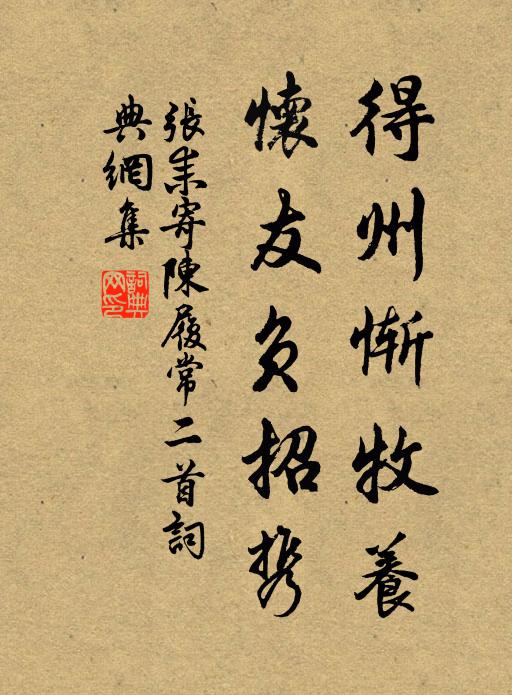 得州慚牧養
懷友負招携
張耒寄陳履常二首詞
典網集
詞典
网印